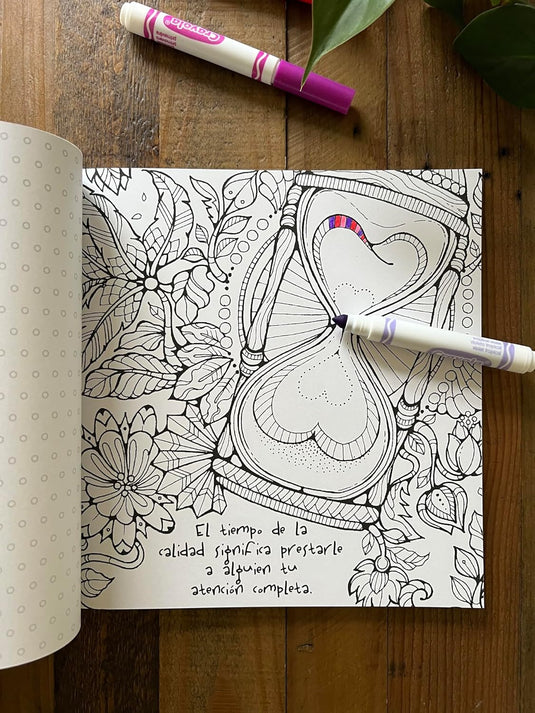 Crayola
El tiempo de la
calidad significa prestarle
a alguien tu
atención completa.